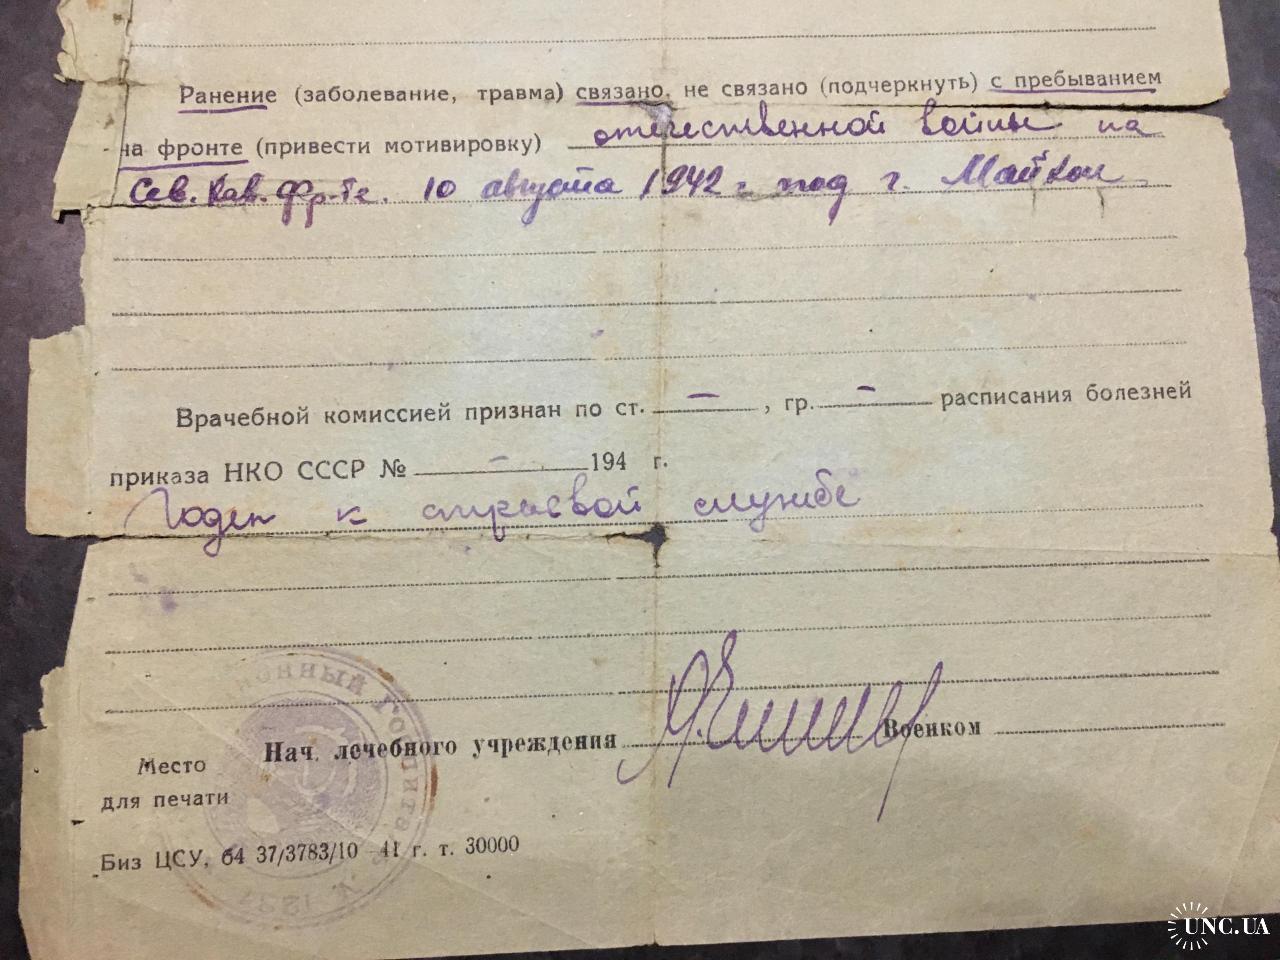 Ранение (заболевание, травма) связано, не связано (подчеркнуть) с пребыванием
на фронте (привести мотивировку) отечественной войны на
Сев. Кав. Фр-те. 10 августа 1942 г. под г. Майкоп
Врачебной комиссией признан по ст. — , гр. — расписания болезней
приказа НКО СССР № — 194 г.
Годен к строевой службе
Нач. лечебного учреждения Военком
Место
для печати
Биз ЦСУ, 64 37/3783/10 41 г. т. 30000
Госпиталь
UNC.UA